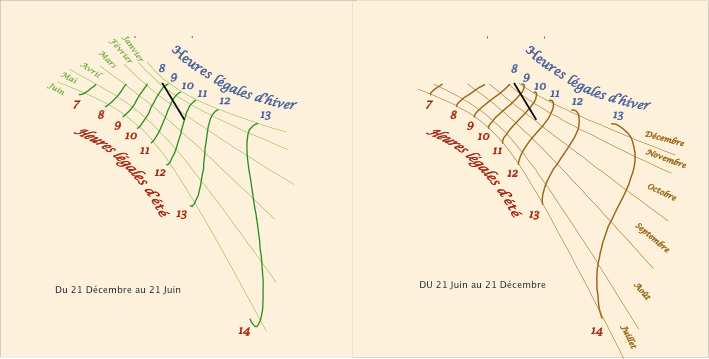 Janvier
Février
Mars
Avril
Mai
Juin
Heures légales d'hiver
8
9
10
11
12
13
7
8
9
10
11
12
13
14
Heures légales d'été
Du 21 Décembre au 21 Juin
Heures légales d'hiver
8
9
10
11
12
13
7
8
9
10
11
12
13
14
Heures légales d'été
Décembre
Novembre
Octobre
Septembre
Août
Juillet
DU 21 Juin au 21 Décembre